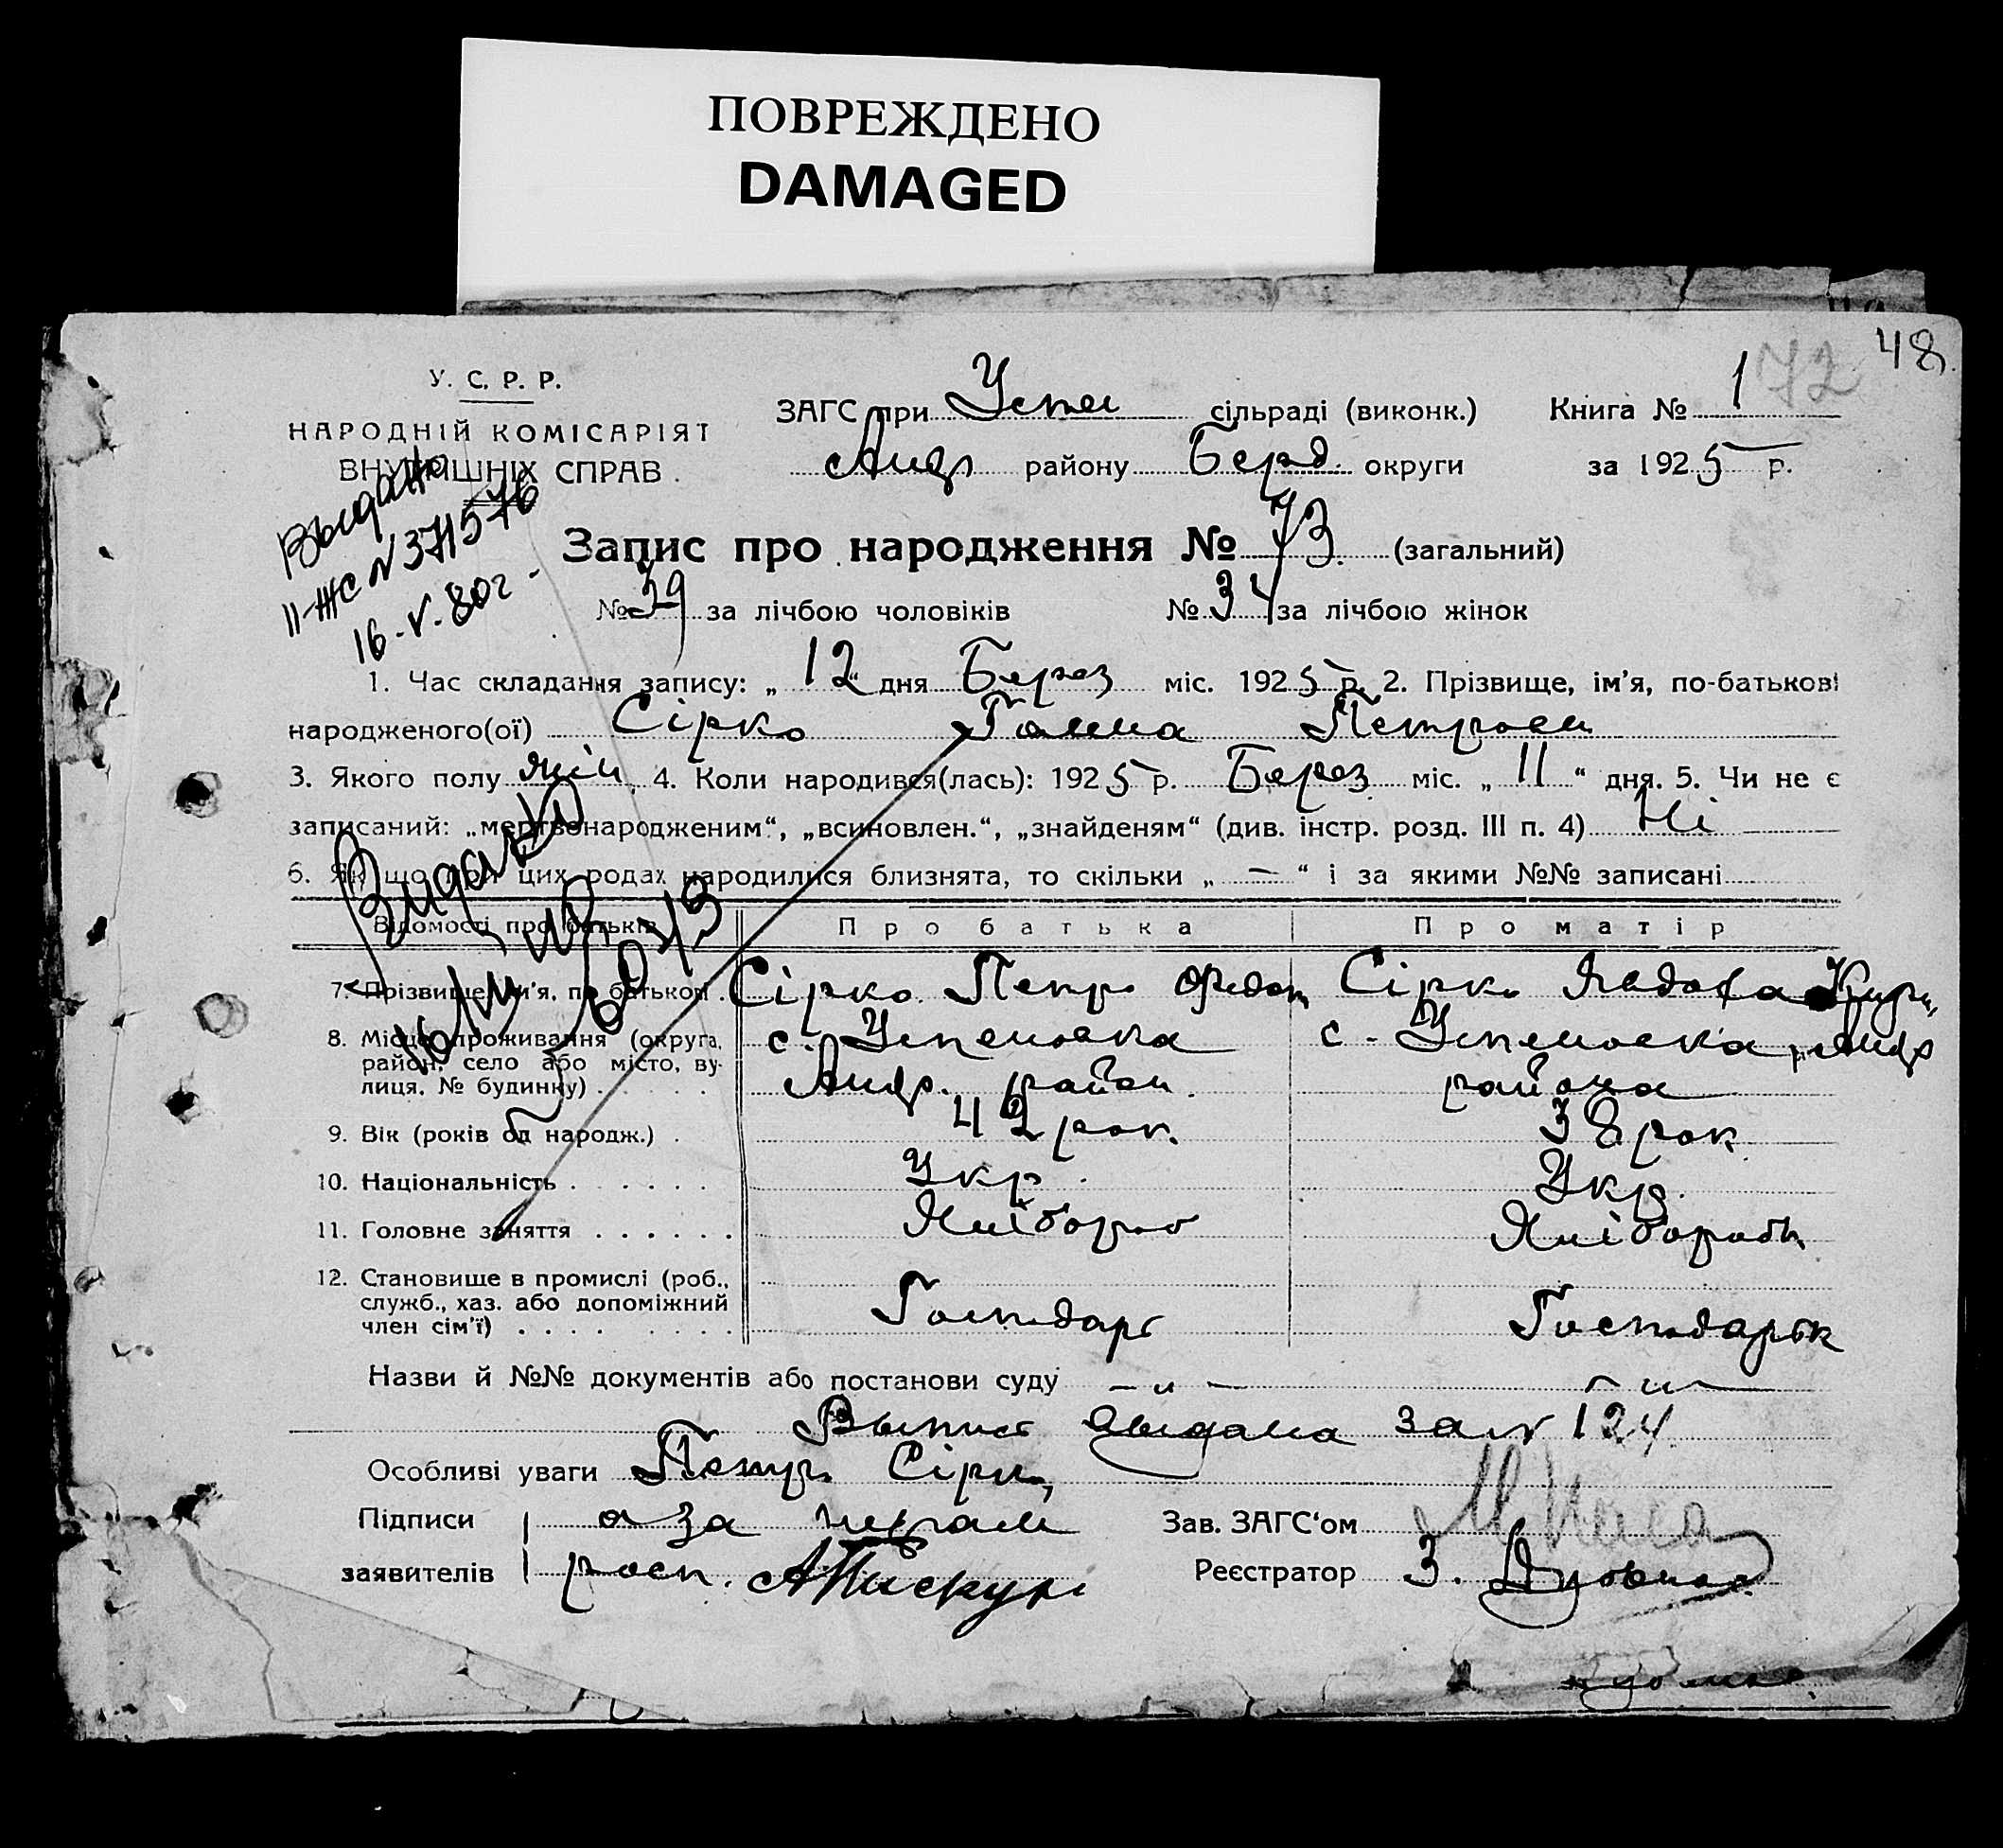 ПОВРЕЖДЕНО
DAMAGED
48
72
У. С. Р. Р.
НАРОДНІЙ КОМІСАРІЯТ
ВНУТРІШНІХ СПРАВ.
ЗАГС при Успен сільраді (виконк.) Книга № 1
Андр району Берд. округи за 1925 р.
Выдано
II-ЖС N 371576
16-V-80г.
Запис про народження № 73. (загальний)
№ 39 за лічбою чоловіків № 34 за лічбою жінок
1. Час складання запису: „12“ дня Берез міс. 1925 р. 2. Прізвище, ім’я, по-батькові
народженого(ої) Сірко Ганна Петровн
3. Якого полу жін. 4. Коли народився(лась): 1925 р. Берез міс. „11“ дня. 5. Чи не є
записаний: „мертвонародженим“, „всиновлен.“, „знайденям“ (див. інстр. розд. III п. 4) Ні
6. Якщо при цих родах народилися близнята, то скільки „—“ і за якими №№ записані
Видано
Відомості про батьків Про батька Про матір
7. Прізвище, ім’я, по батькові. Сірко Петро Федот Сірко Явдоха
8. Місце проживання (округа, район, село або місто, вулиця, № будинку) с. Успеновка Андр. район с. Успеновка, Андр района
9. Вік (років од народж.) 42 рок. 38 рок
10. Національність Укр. Укр.
11. Головне заняття Хліб
12. Становище в промислі (роб., служб., хаз. або допоміжний член сім’ї) Господарь Господарьк
Назви й №№ документів або постанови суду — „ — — „ —
Выпись выдана за № 124
Особливі уваги Петр Сірко,
Підписи а за неграм Зав. ЗАГС‘ом
заявителів росп. Реєстратор З.